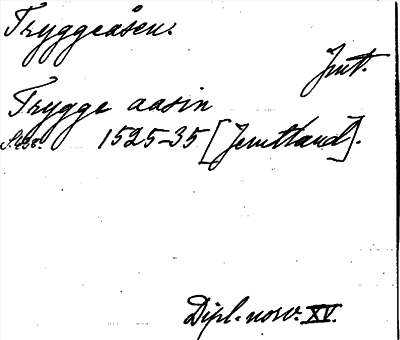 Tryggeåsen.
Jmt.
Trygge aasin
1525-35 [Jemtland].
Dipl. norv. XV.